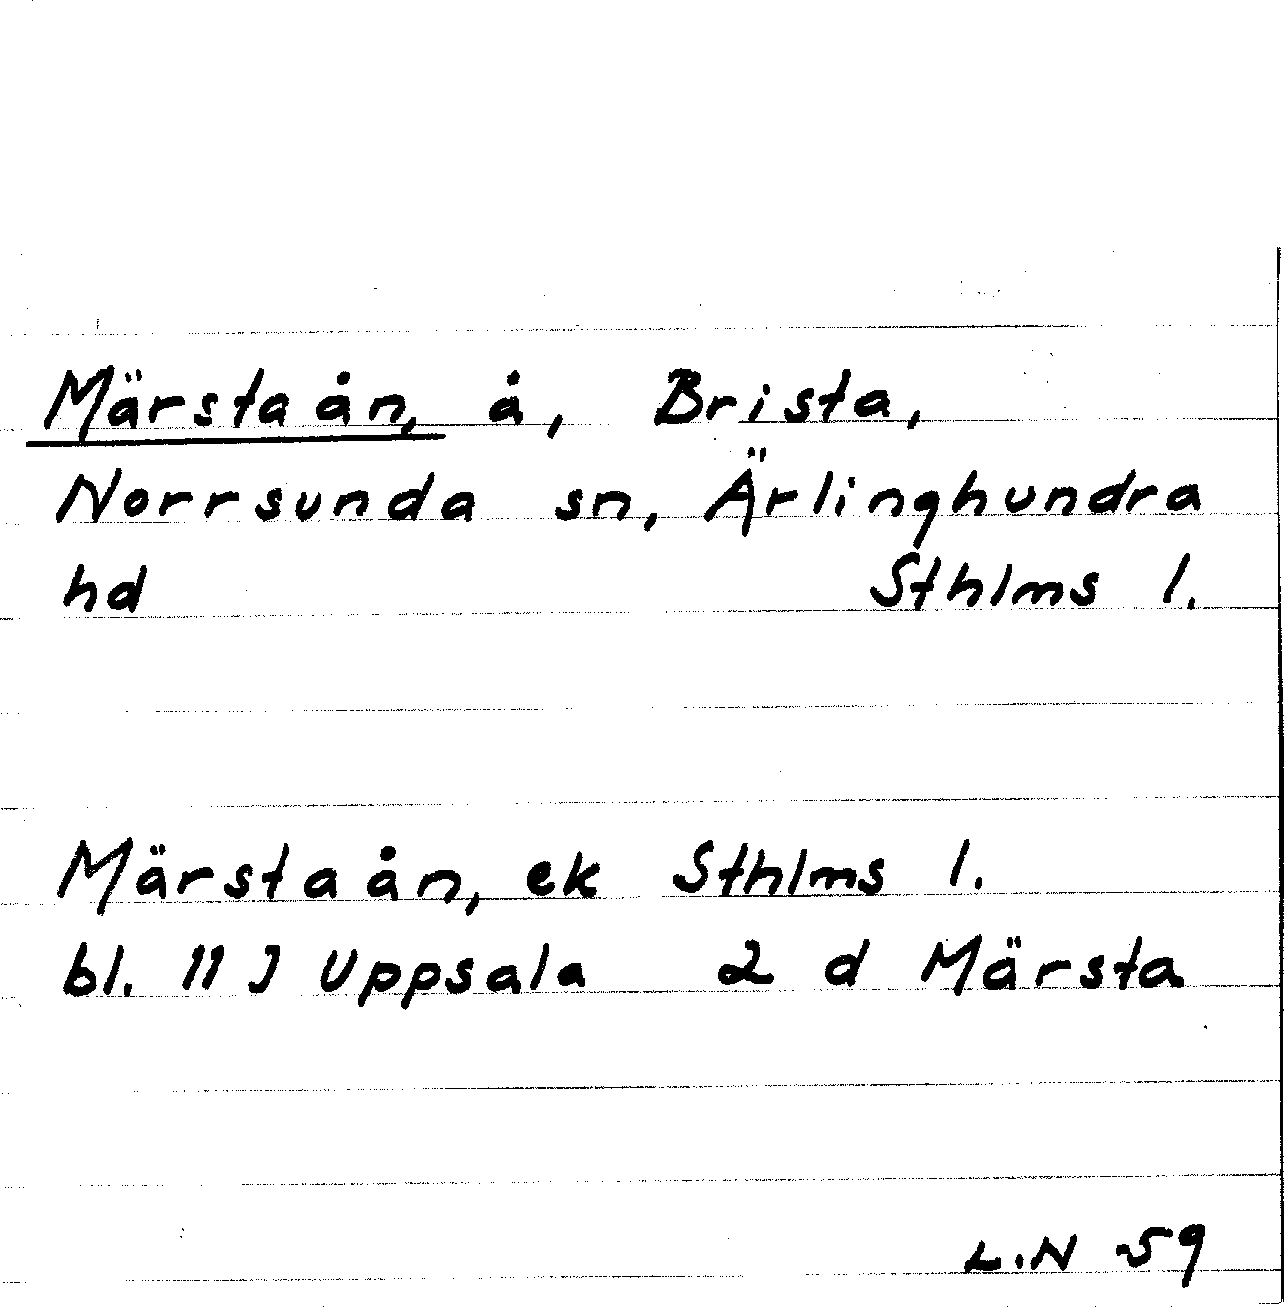 Märstaån, å, Brista,
Norrsunda sn, Ärlinghundra
hd Sthlms l.
Märstaån, ek Sthlms l.
bl. 11 J Uppsala 2 d Märsta
L.N -59